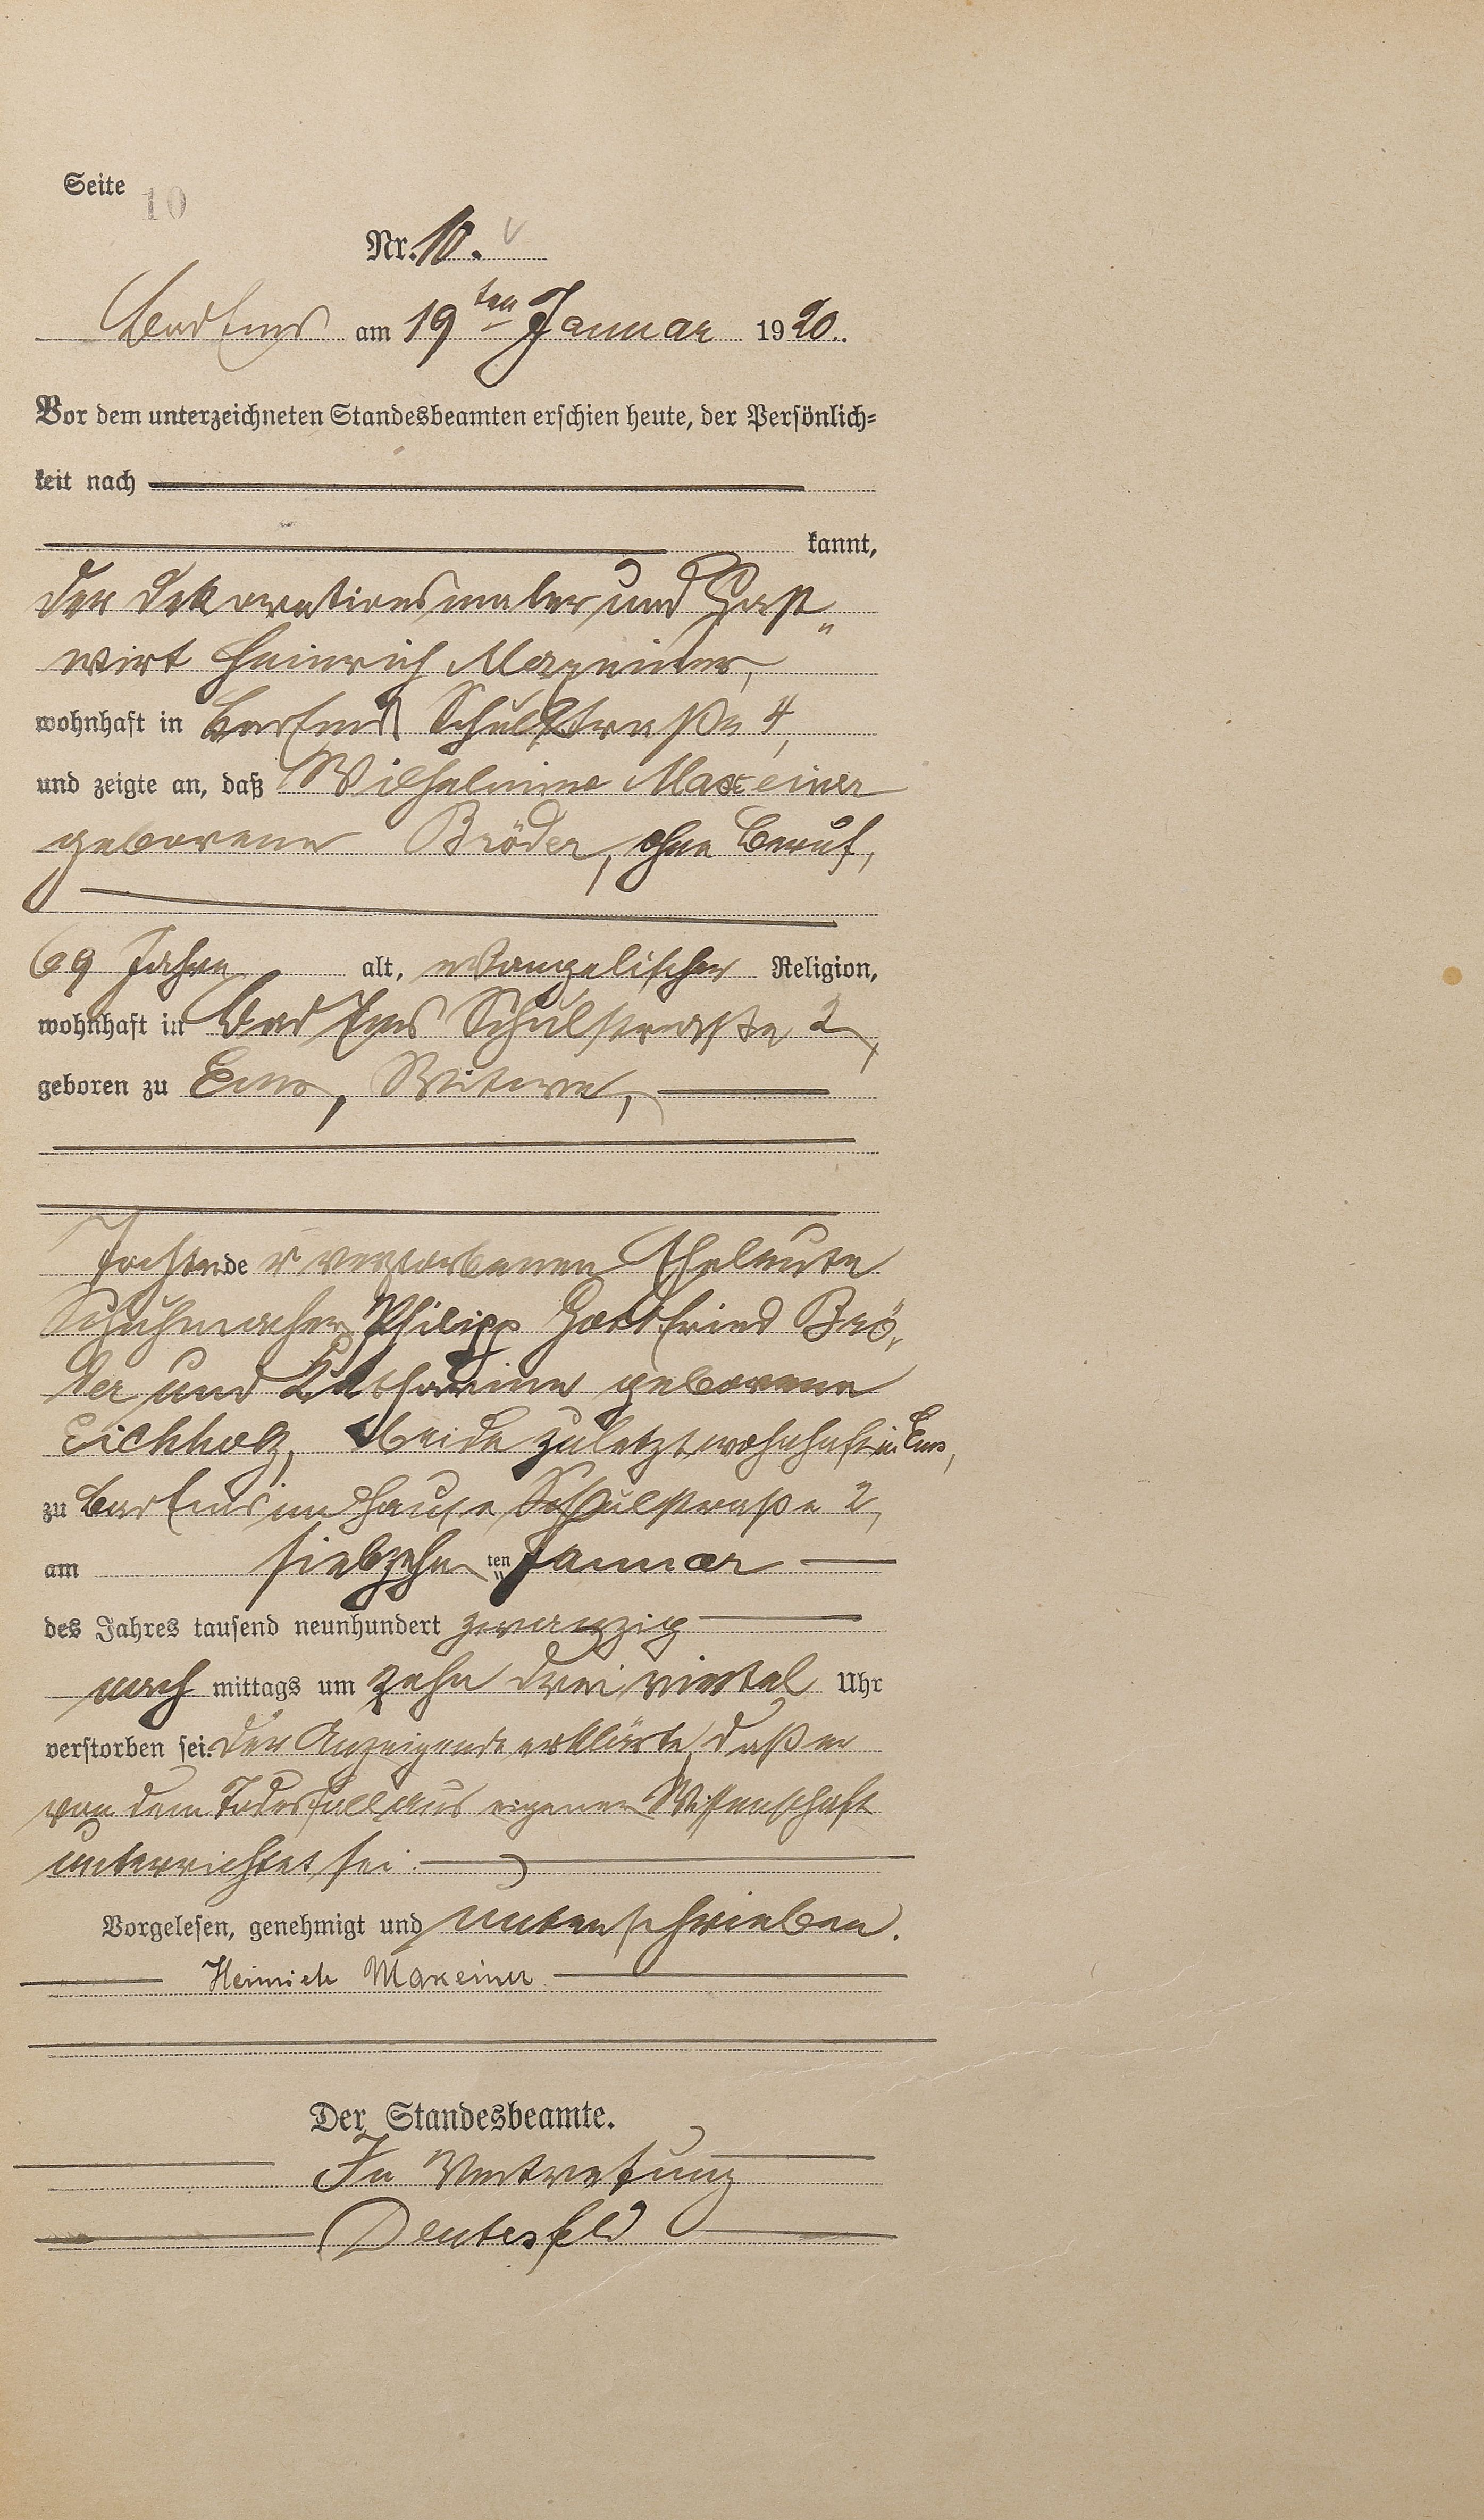 Seite 10
Nr. 10.
Bad Ems am 19ten Januar 1920.
Vor dem unterzeichneten Standesbeamten erschien heute, der Persönlich-
keit nach
kannt,
der Dekorationsmaler und Gast-
wirt Heinrich Maxeiner,
wohnhaft in Bad Ems Schulstraße 4,
und zeigte an, daß Wilhelmine Maxeiner
geborene Bröder, ohne Beruf,
69 Jahre alt, evangelischer Religion,
wohnhaft in Bad Ems Schulstraße 2,
geboren zu Ems, Witwe,
Tochter der verstorbenen Eheleute
Schuhmacher Philipp Gottfried Brö-
der und Katharine geborene
Eichholz, beide zuletzt wohnhaft in Ems,
zu Bad Ems im Hause Schulstraße 2,
am siebzehnten Januar
des Jahres tausend neunhundert zwanzig
nach mittags um zehn drei viertel Uhr
verstorben sei. Der Anzeigende erklärte, daß er
von dem Todesfall aus eigener Wissenschaft
unterrichtet sei.
Vorgelesen, genehmigt und unterschrieben.
Heinrich Maxeiner
Der Standesbeamte.
In Vertretung
Deutesfeld